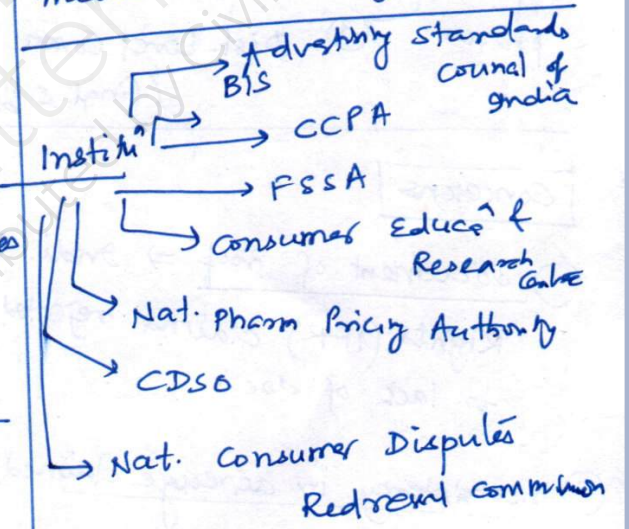 Advertising Standards
Council of
India
BIS
CCPA
Institun
FSSA
Consumer Educan &
Research
Centre
Nat. Pharm Pricing Authority
CDSO
Nat. Consumer Disputes
Redressal Commission